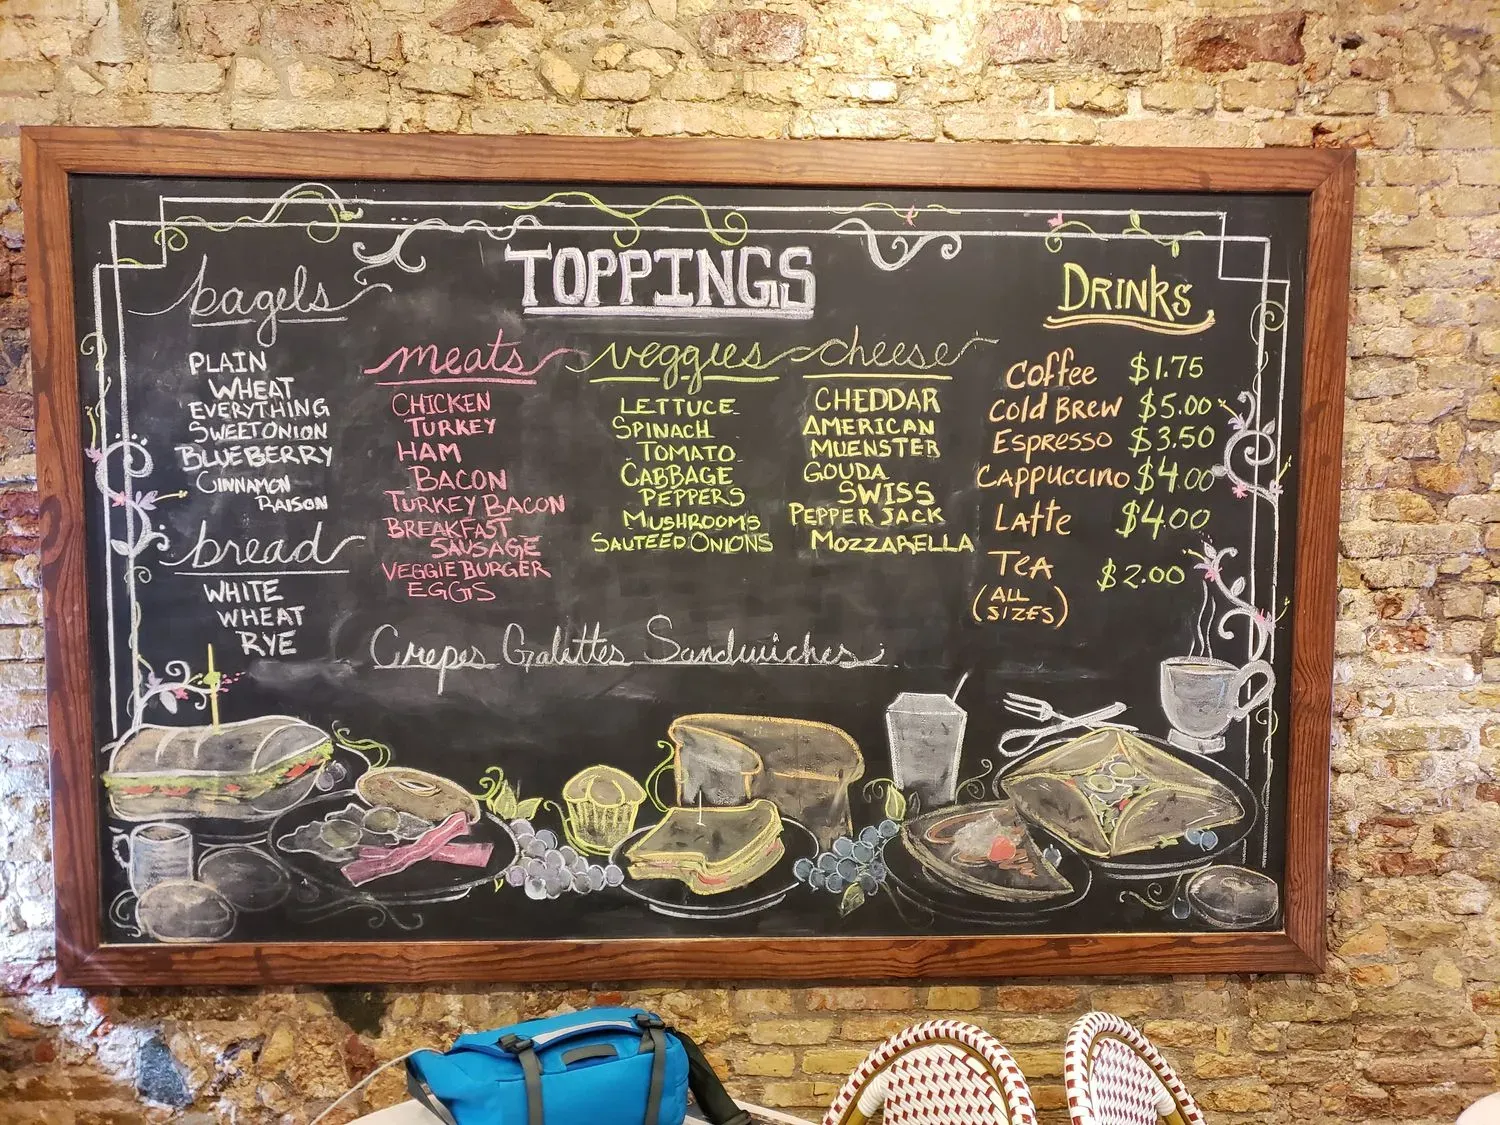 TOPPINGS
bagels
PLAIN
WHEAT
EVERYTHING
SWEET ONION
BLUEBERRY
CINNAMON
RAISON
bread
WHITE
WHEAT
RYE
meats
CHICKEN
TURKEY
HAM
BACON
TURKEY BACON
BREAKFAST
SAUSAGE
VEGGIE BURGER
EGGS
veggies
LETTUCE
SPINACH
TOMATO
CABBAGE
PEPPERS
MUSHROOMS
SAUTEED ONIONS
cheese
CHEDDAR
AMERICAN
MUENSTER
GOUDA
SWISS
PEPPER JACK
MOZZARELLA
DRINKS
Coffee $1.75
Cold Brew $5.00
Espresso $3.50
Cappuccino $4.00
Latte $4.00
Tea $2.00
(ALL
SIZES)
Crepes Galettes Sandwiches